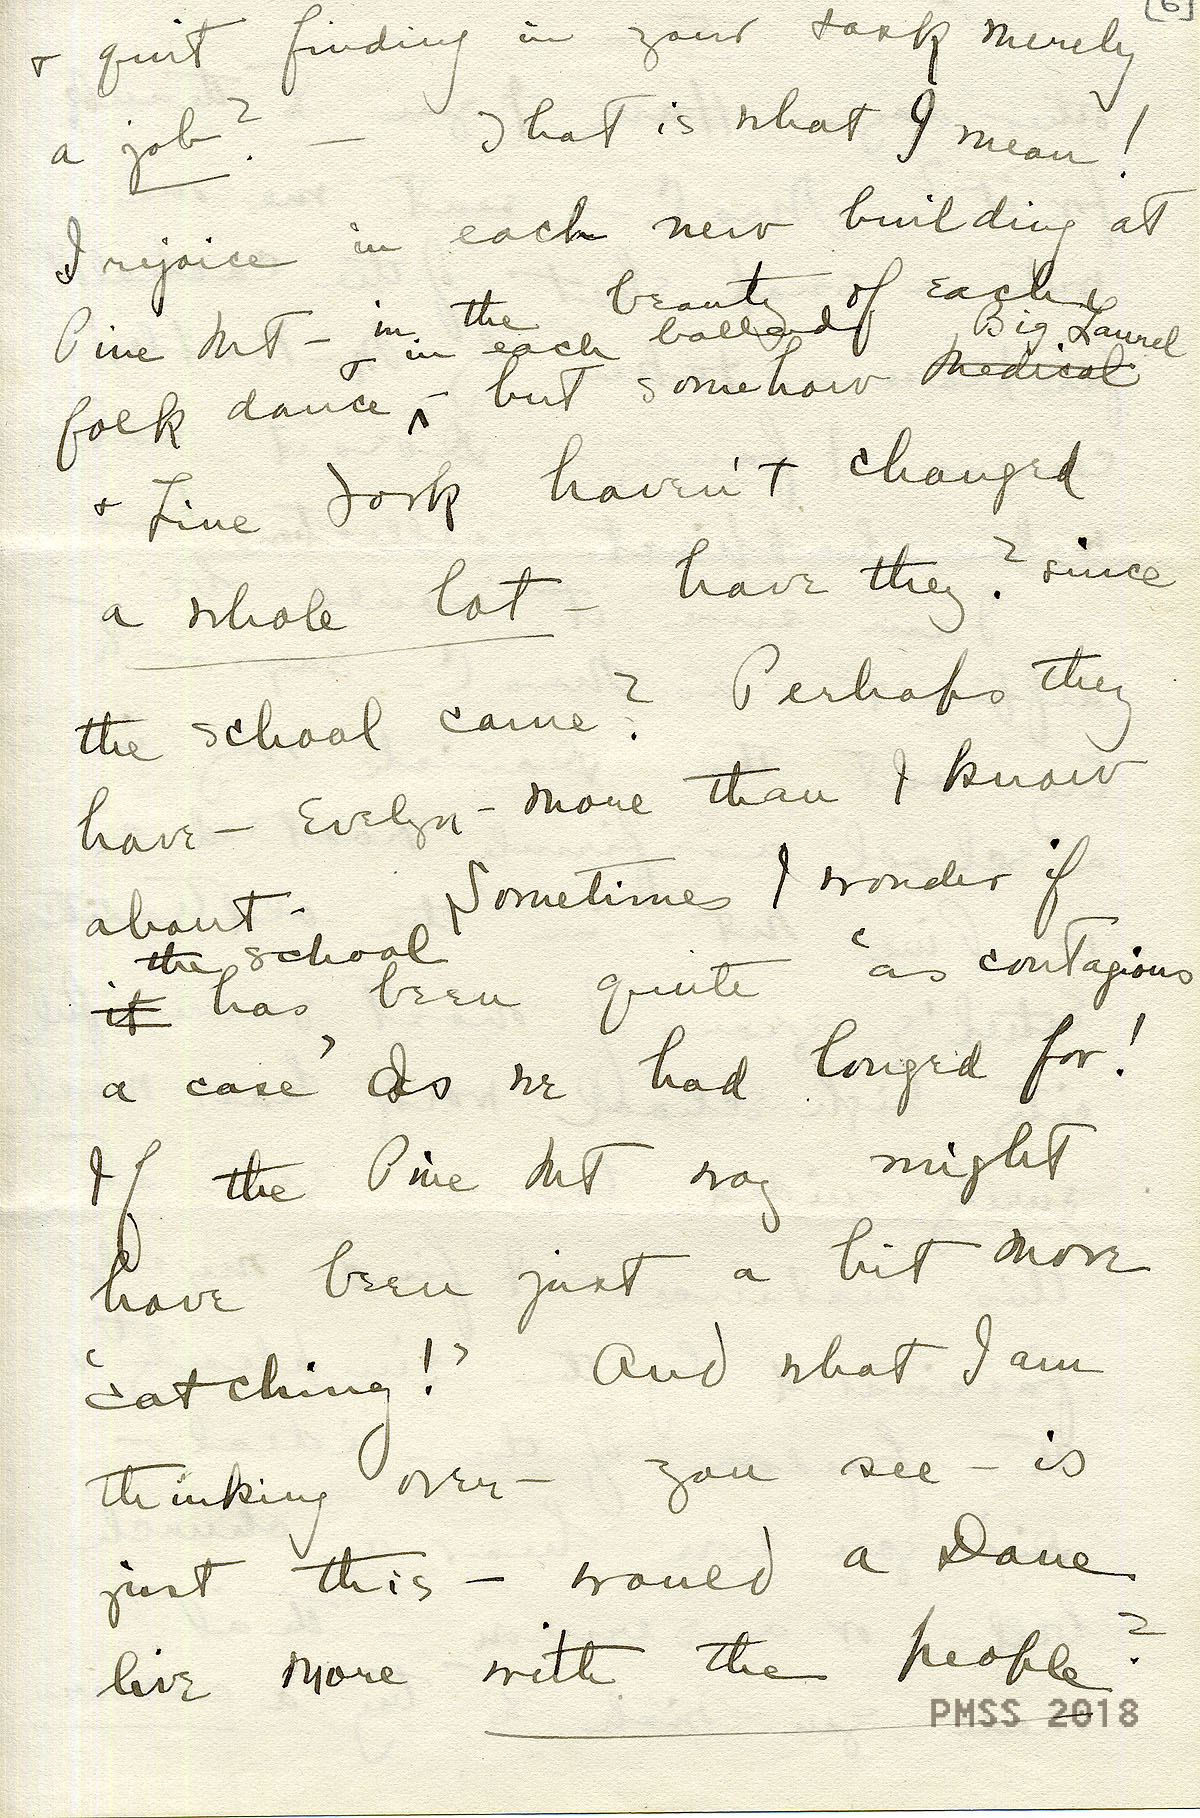 [6]
& quit finding in your task merely
a job? — That is what I mean!
I rejoice in each new building at
Pine Mt – in the beauty of each
& in each ballad Big Laurel
folk dance ^ – but somehow Medical
& Line Fork haven't changed
a whole lot – have they? since
the school came? Perhaps they
have – Evelyn – more than I know
about. Sometimes I wonder if
the school
it has been quite 'as contagious
a case' as we had longed for!
If the Pine Mt way might
have been just a bit more
'catching!' And what I am
thinking over – you see – is
just this – would a Dane
live more with the people?
PMSS 2018